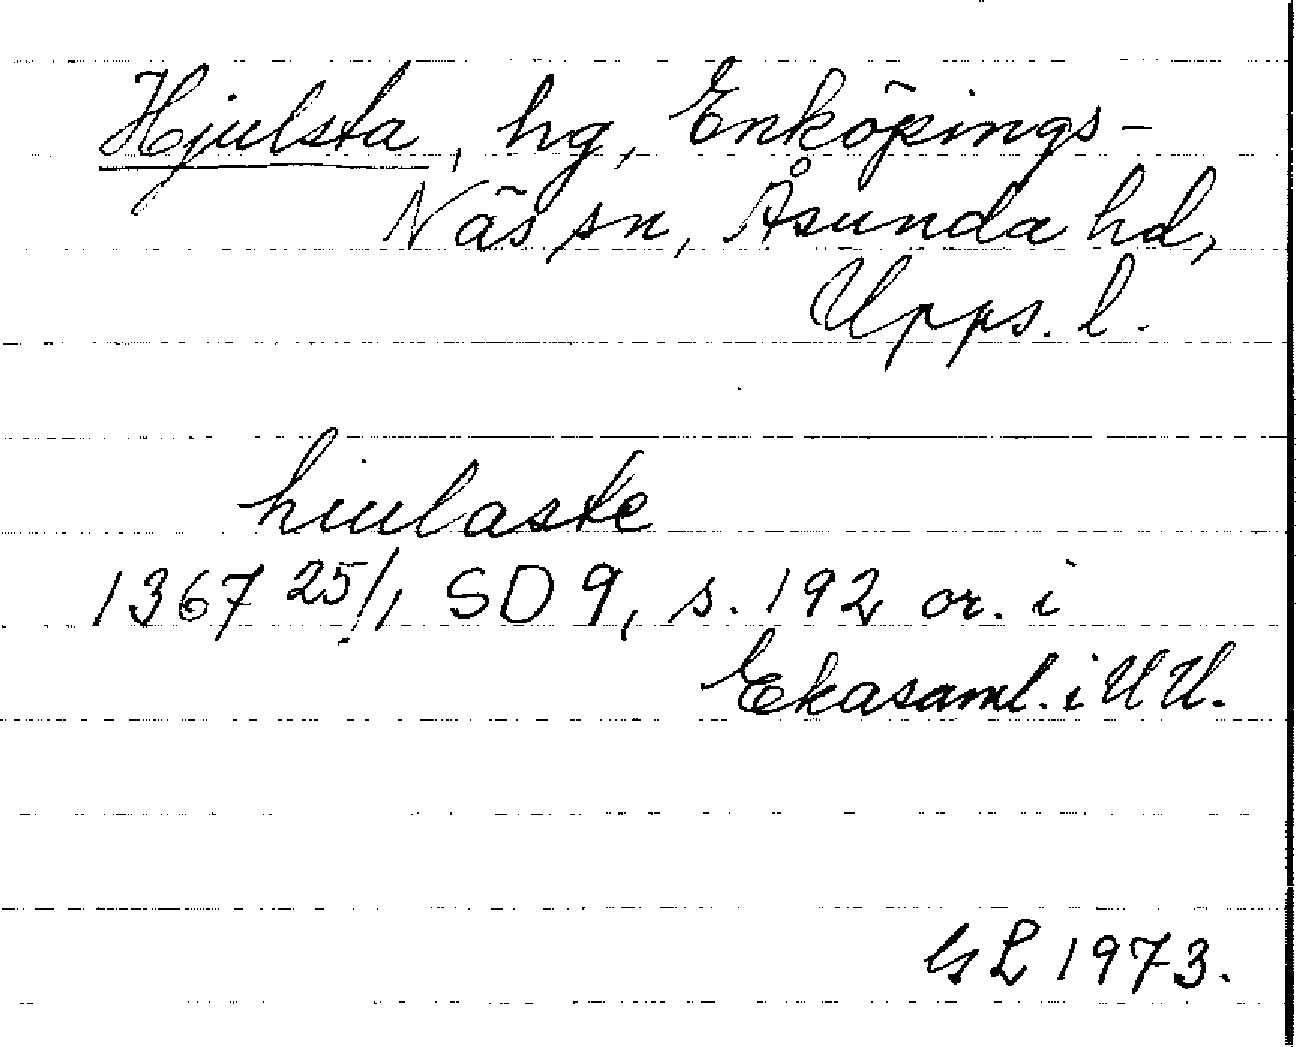 Hjulsta, hg, Enköpings-
Näs sn, Åsunda hd,
Upps. l.
hiulaste
1367 25/1, SD 9, s. 192 or. i
Ekasaml. i UU.
GL 1973.